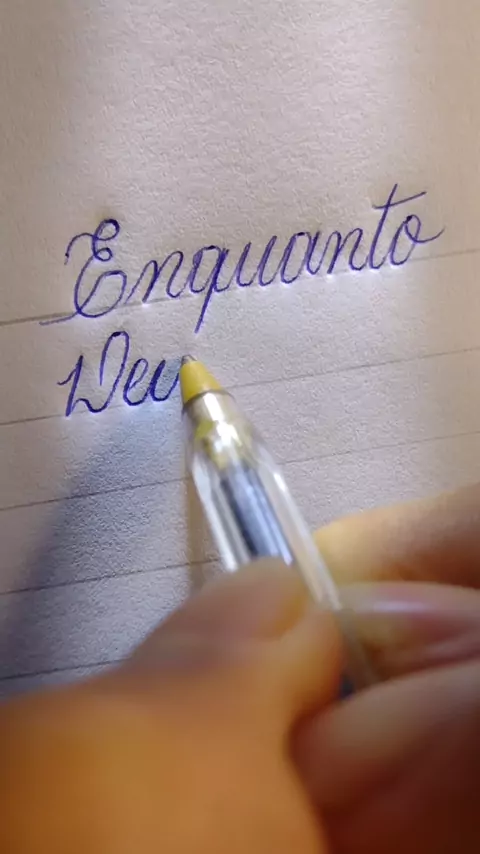 Enquanto
Deu